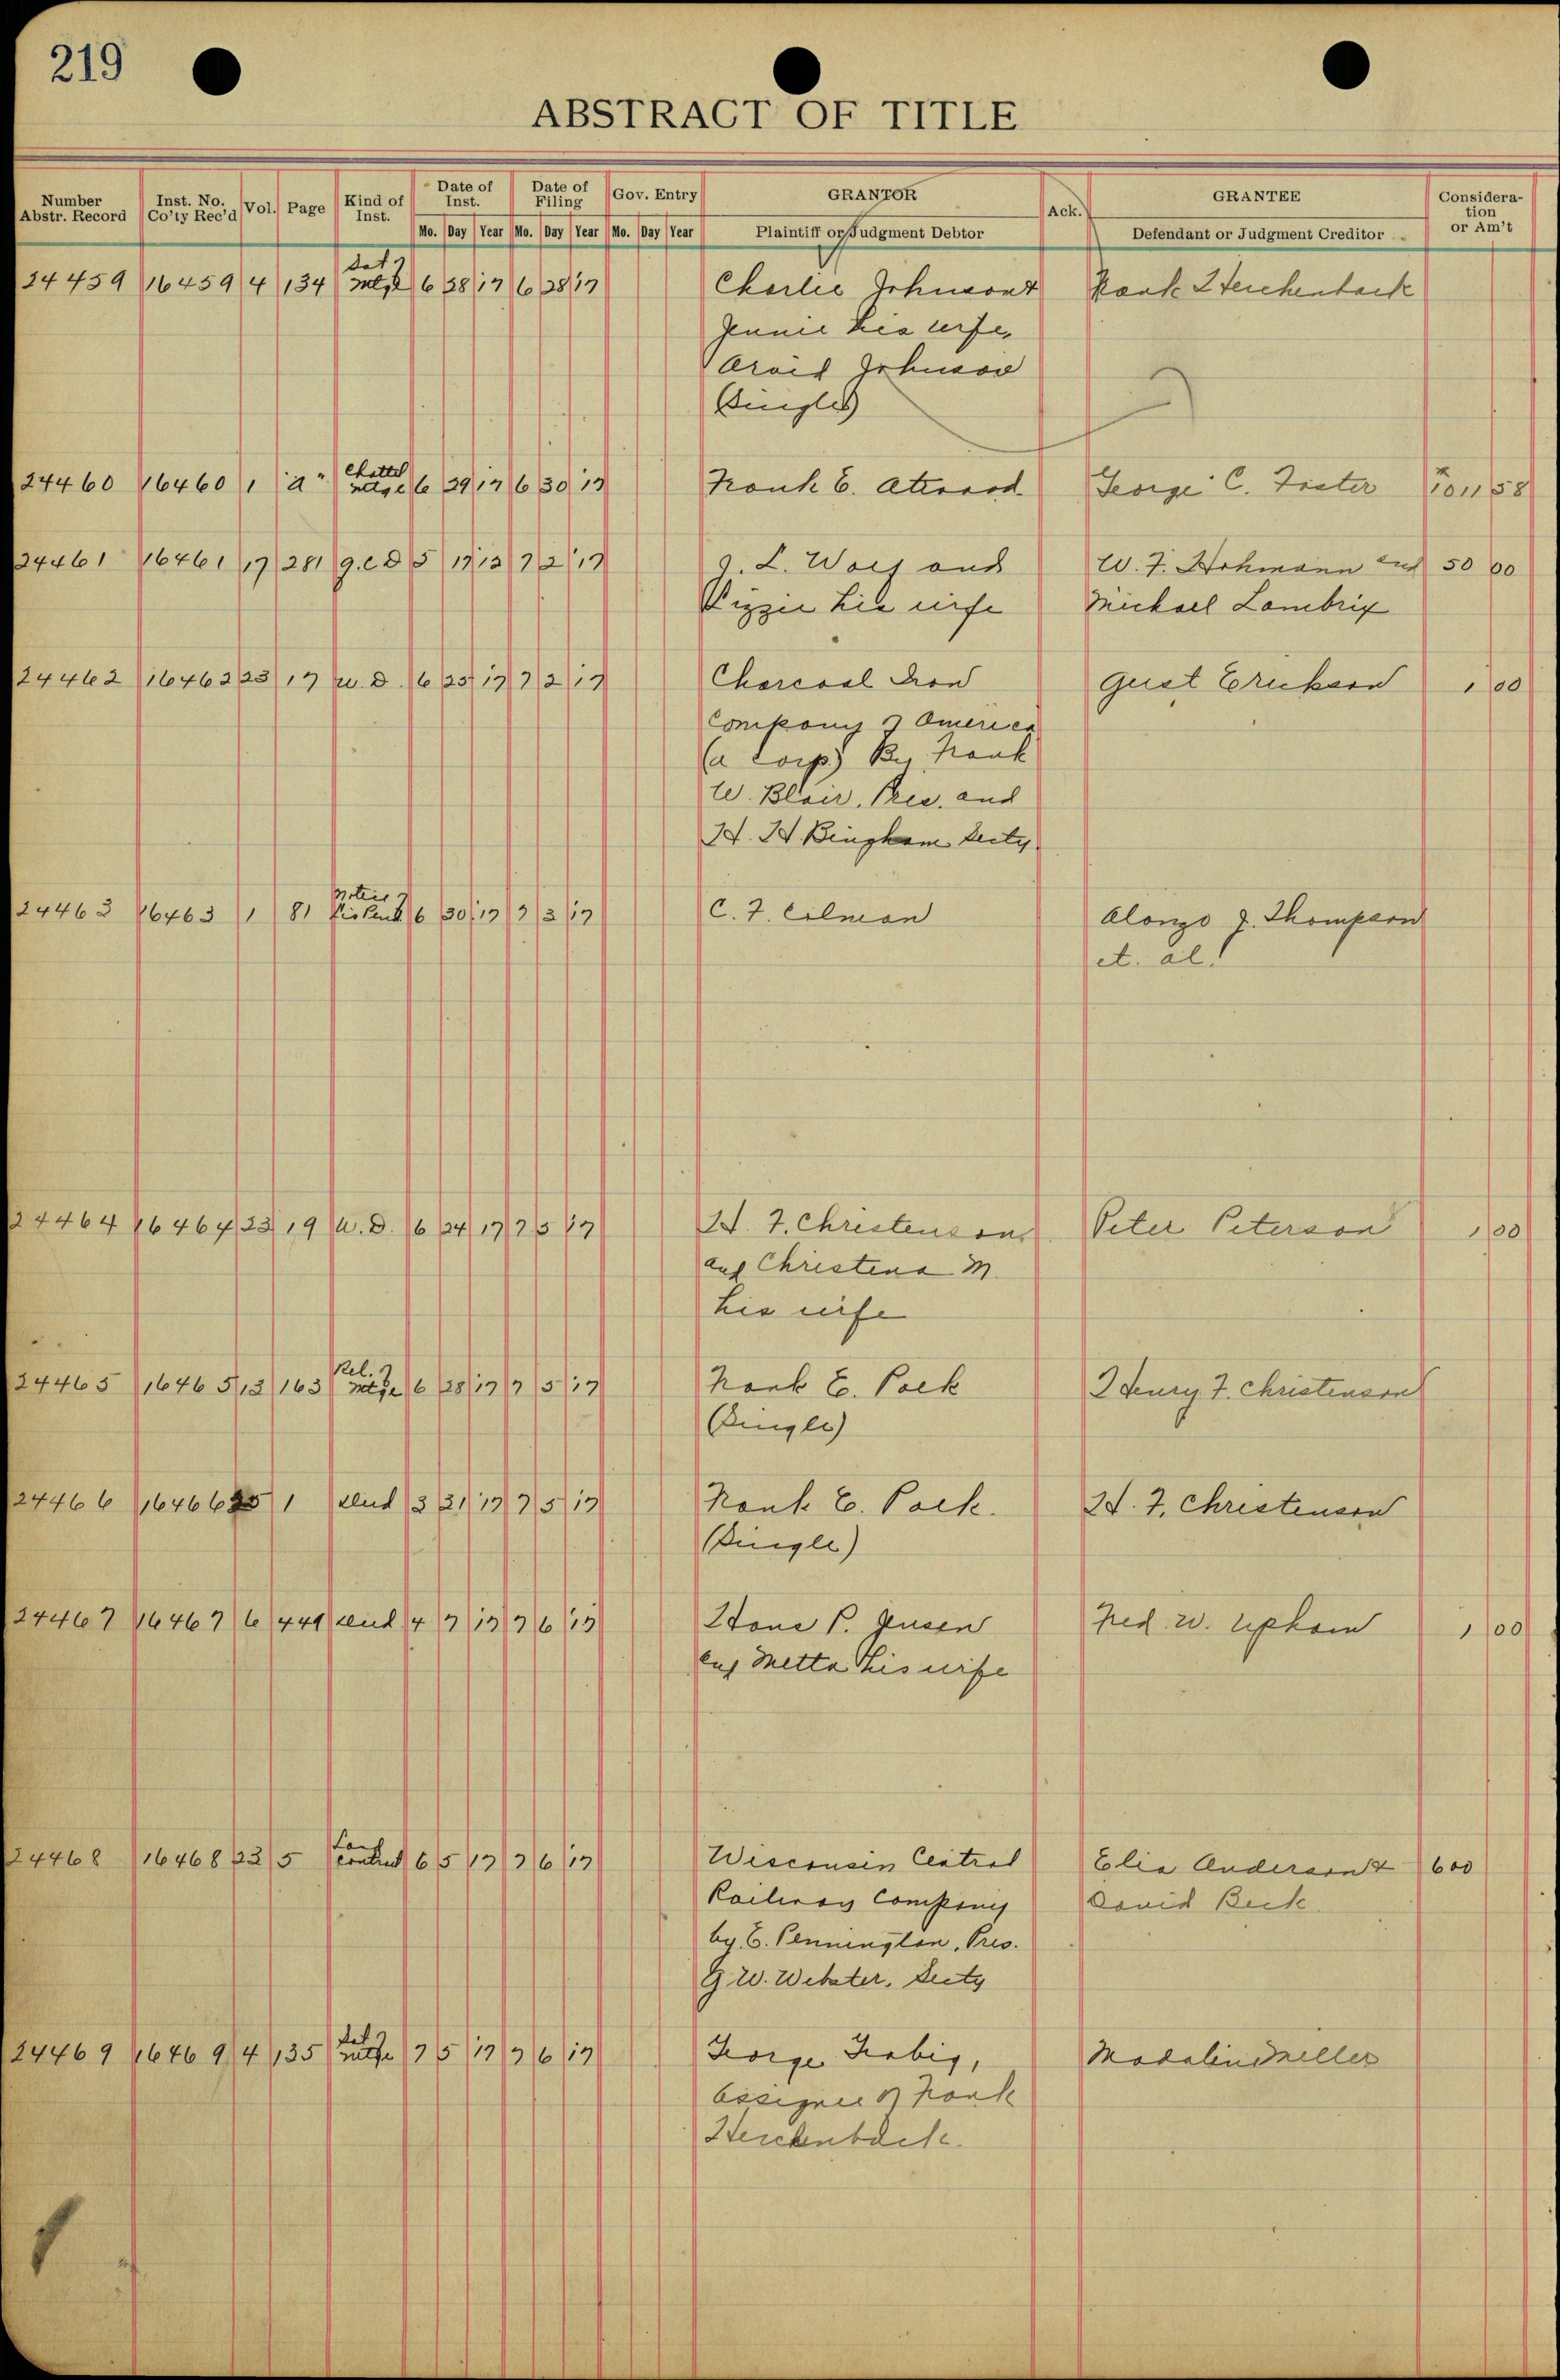 219
ABSTRACT OF TITLE
Number Abstr. Record Inst. No. Co'ty Rec'd Vol. Page Kind of Inst. Date of Inst. Date of Filing Gov. Entry GRANTOR Ack. GRANTEE Consideration or Am't
Mo. Day Year Mo. Day Year Mo. Day Year Plaintiff or Judgment Debtor Defendant or Judgment Creditor
Sat of
24459 16459 4 134 Mtge 6 28 17 6 28 17 Charlie Johnson & Frank Herchenback
Jennie his wife,
Arvid Johnson
(Single)
Chattel
24460 16460 1 "a" Mtge 6 29 17 6 30 17 Frank E. Atwood George C. Foster 1011 58
24461 16461 17 281 q.c D 5 17 13 7 2 17 J. L. Wolf and W. F. Hohmann and 50 00
Lizzie his wife Michael Lambrix
24462 16462 23 17 W.D. 6 25 17 7 2 17 Charcoal Iron Gust Erickson 1 00
Company of America
(a corp.) By Frank
W. Blair, Pres. and
H. H. Bingham Secty.
Notice of
24463 16463 1 81 Lis Pend. 6 30 17 7 3 17 C. F. Colman Alonzo J. Thompson
et. al.
24464 16464 23 19 W.D. 6 24 17 7 5 17 H. F. Christenson Peter Peterson 1 00
and Christena M.
his wife
Rel. of
24465 16465 13 163 Mtge 6 28 17 7 5 17 Frank E. Pack Henry F. Christenson
(Single)
24466 16466 25 1 3 21 17 7 5 17 Frank E. Pack. H. F. Christenson
(Single)
24467 16467 6 449 4 7 17 7 6 17 Hans P. Jensen Fred. W. Upham 1 00
and Metta his wife
Land
24468 16468 23 5 Contract 6 5 17 7 6 17 Wisconsin Central Elia Anderson & 600
Railway Company David Beck.
by E. Pennington, Pres.
G. W. Webster, Secty
Sat of
24469 16469 4 135 Mtge 7 5 17 7 6 17 George Madalin Miller
Assignee of Frank
Herchenback.